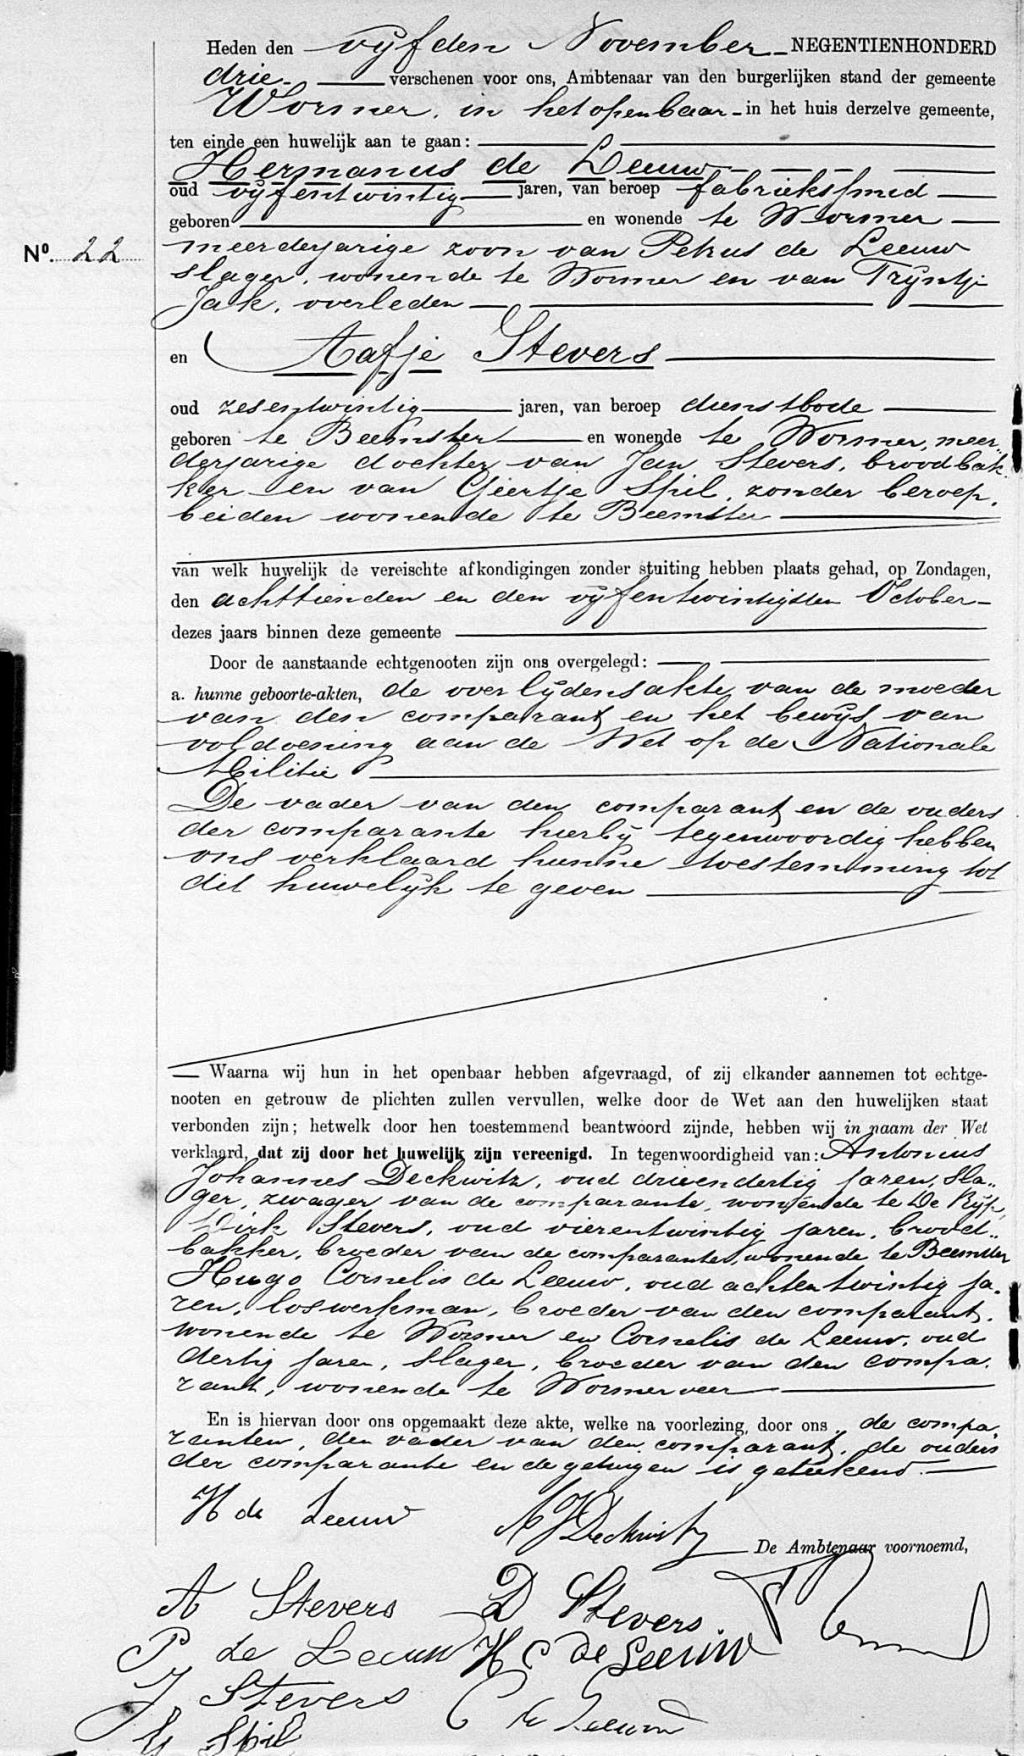 Heden den vijfden November NEGENTIENHONDERD
drie verschenen voor ons, Ambtenaar van den burgerlijken stand der gemeente
Wormer, in het openbaar in het huis derzelve gemeente,
ten einde een huwelijk aan te gaan:
Hermanus de Leeuw
oud vijfentwintig jaren, van beroep fabrieksmid
geboren en wonende te Wormer
No. 22
meerderjarige zoon van Petrus de Leeuw
slager, wonende te Wormer en van Trijntje
Jak, overleden
en Aafje Stevers
oud zesentwintig jaren, van beroep dienstbode
geboren te Beemster en wonende te Wormer, meer
derjarige dochter van Jan Stevers, broodbak
ker en van Geertje Spil, zonder beroep,
beiden wonende te Beemster
van welk huwelijk de vereischte afkondigingen zonder stuiting hebben plaats gehad, op Zondagen,
den achttienden en den vijfentwintigsten October
dezes jaars binnen deze gemeente
Door de aanstaande echtgenooten zijn ons overgelegd:
a. hunne geboorte-akten, de overlijdensakte van de moeder
van den comparant en het bewijs van
voldoening aan de Wet op de Nationale
Militie
De vader van den comparant en de ouders
der comparante hierbij tegenwoordig hebben
ons verklaard hunne toestemming tot
dit huwelijk te geven
Waarna wij hun in het openbaar hebben afgevraagd, of zij elkander aannemen tot echtge-
nooten en getrouw de plichten zullen vervullen, welke door de Wet aan den huwelijken staat
verbonden zijn; hetwelk door hen toestemmend beantwoord zijnde, hebben wij in naam der Wet
verklaard, dat zij door het huwelijk zijn vereenigd. In tegenwoordigheid van: Antonius
Johannes Deckwitz, oud drieendertig jaren, sla-
ger, zwager van de comparante, wonende te De Rijp,
Dirk Stevers, oud vierentwintig jaren, brood-
bakker, broeder van de comparante, wonende te Beemster
Hugo Cornelis de Leeuw, oud achtentwintig ja-
ren, loswerkman, broeder van den comparant,
wonende te Wormer en Cornelis de Leeuw, oud
dertig jaren, slager, broeder van den compa-
rant, wonende te Wormerveer
En is hiervan door ons opgemaakt deze akte, welke na voorlezing, door ons, de compa-
ranten, den vader van den comparant, de ouders
der comparante en de getuigen is geteekend.
H de Leeuw
A J Deckwitz
De Ambtenaar voornoemd,
A Stevers
D Stevers
P de Leeuw
H C de Leeuw
J Stevers
C de Leeuw
G Spil